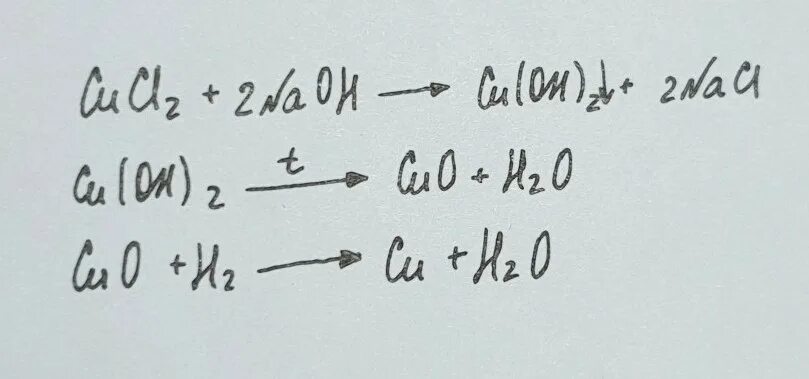 CuCl₂ + 2NaOH → Cu(OH)₂↓ + 2NaCl
Cu(OH)₂ —t→ CuO + H₂O
CuO + H₂ → Cu + H₂O